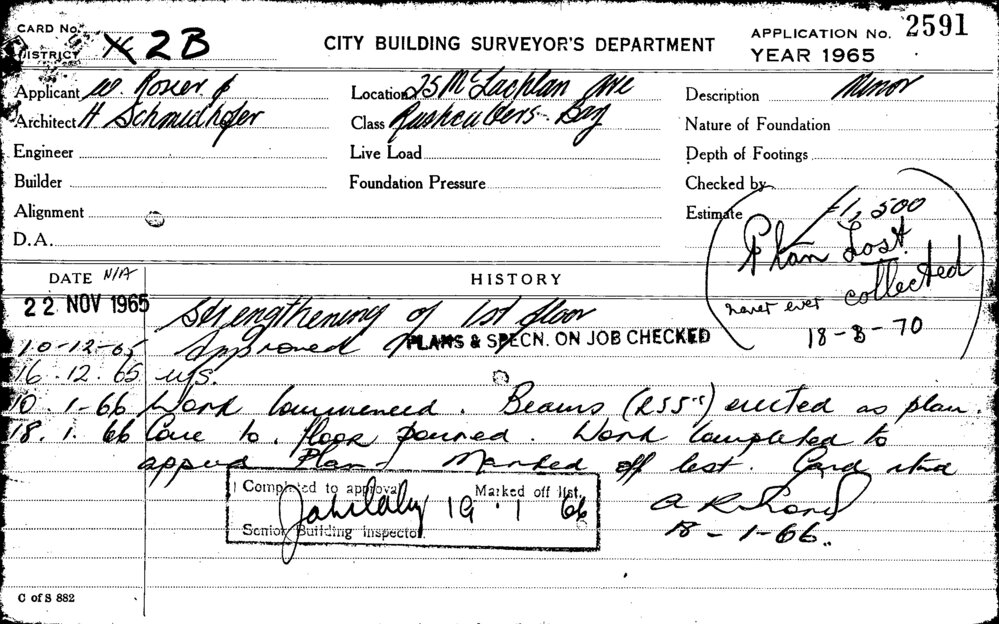 CARD No.
DISTRICT X 2B
CITY BUILDING SURVEYOR'S DEPARTMENT
APPLICATION No. 2591
YEAR 1965
Applicant W. Rosier &
Architect H Schmidhofer
Engineer
Builder
Alignment
D.A.
Location 25 McLachlan Ave
Class Rushcutters Bay
Live Load
Foundation Pressure
Description Minor
Nature of Foundation
Depth of Footings
Checked by
Estimate £1,500
Plan Lost
never ever collected
18-8-70
DATE N/A
HISTORY
22 NOV 1965 Strengthening of 1st floor
10-12-65 Approved PLANS & SPECN. ON JOB CHECKED
16.12.65 u/s.
10.1-66 Work commenced. Beams (RSS's) erected as plan.
18.1.66 Conc to. floor poured. Work completed to
appvd Plan. Marked off list. Card
Completed to approval Marked off list.
19.1 66
Senior Building Inspector
18-1-66.
C of S 882